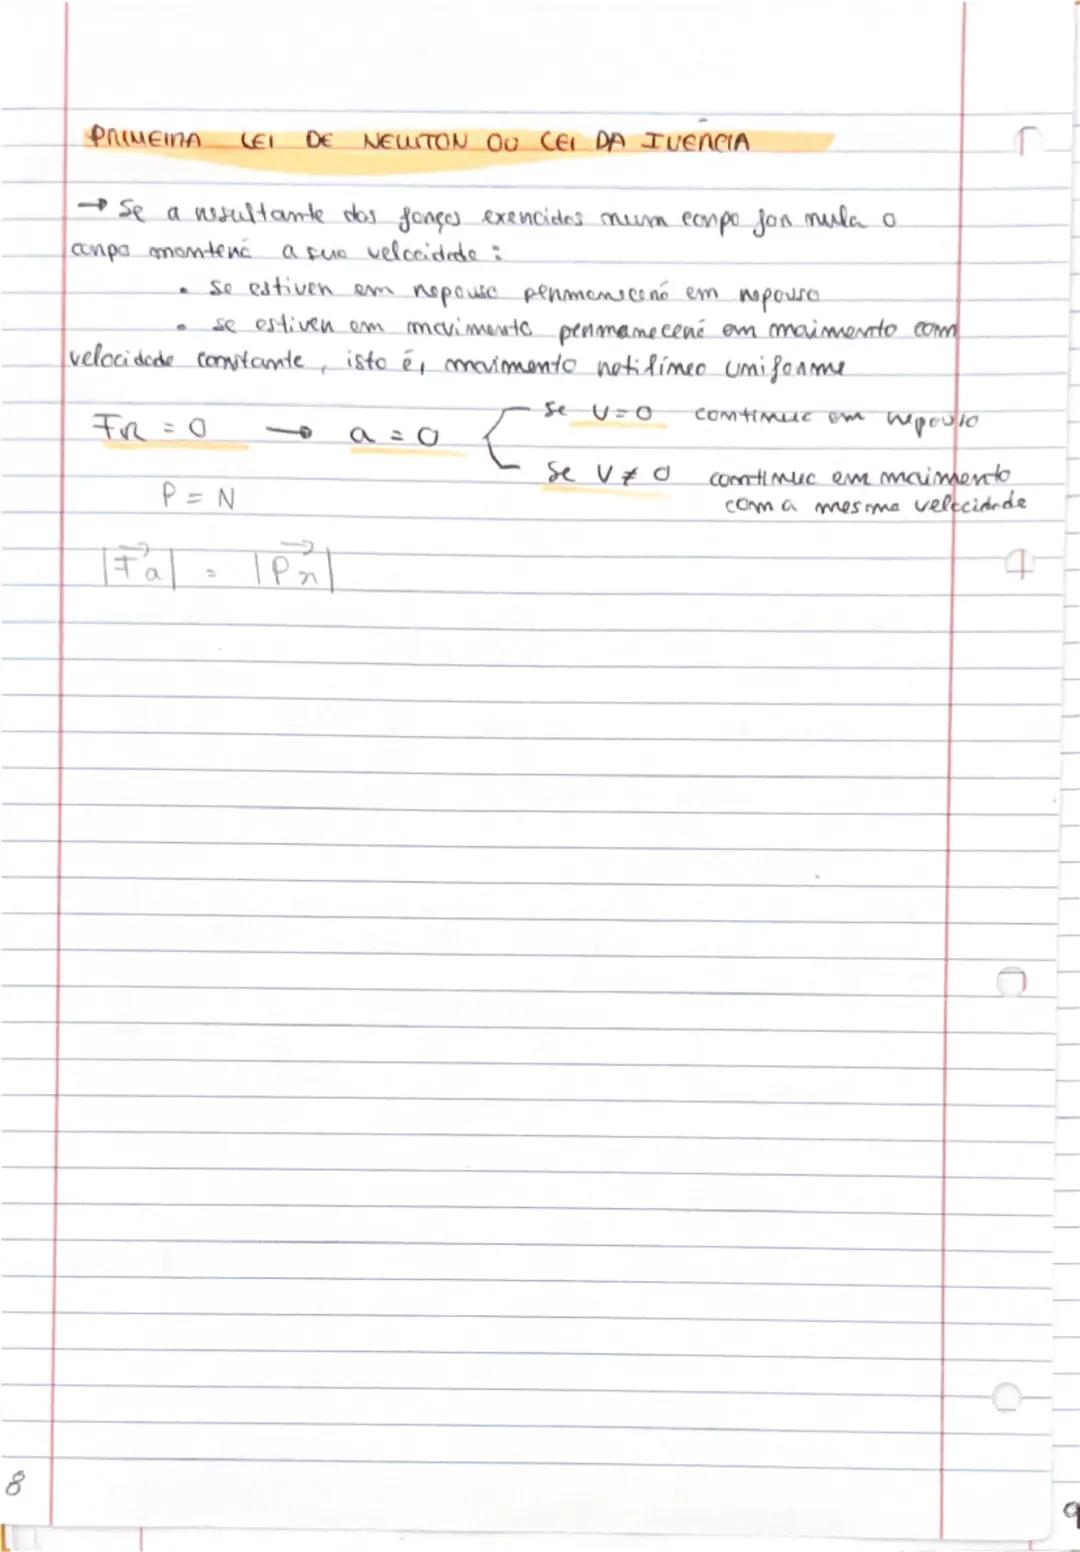 PRIMEIRA LEI DE NEWTON OU LEI DA INÉRCIA
→ Se a resultante das forças exercidas num corpo for nula o
corpo manterá a sua velocidade :
• se estiver em repouso permanecerá em repouso
• se estiver em movimento permanecerá em movimento com
velocidade constante, isto é, movimento retilíneo uniforme
FR = 0 → a = 0 se v = 0 continua em repouso
se v ≠ 0 continua em movimento
com a mesma velocidade
P = N
|Fa| = |Px|
8
9